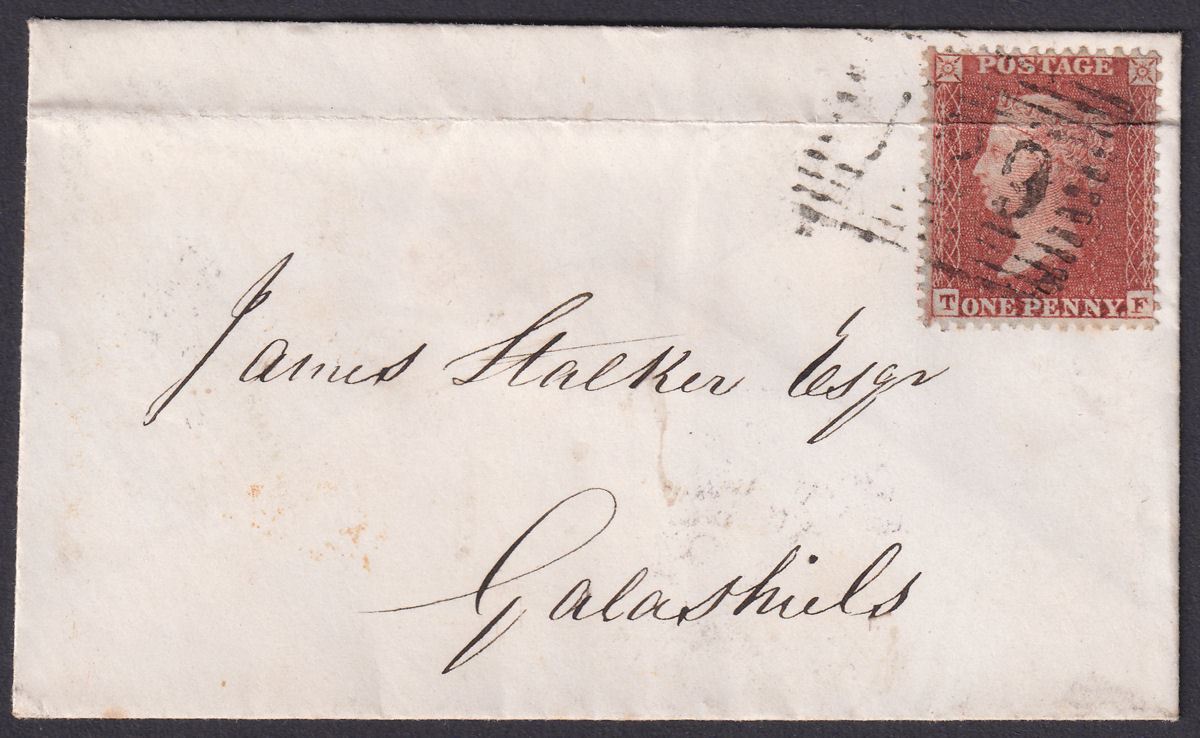 POSTAGE
T ONE PENNY. F
James Stalker Esqr
Galashiels